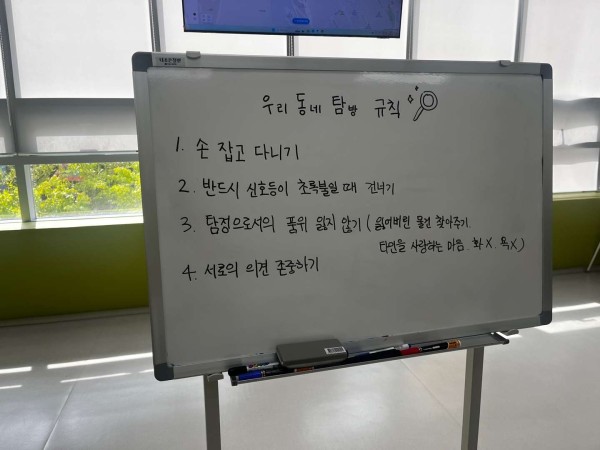 우리 동네 탐방 규칙
1. 손 잡고 다니기
2. 반드시 신호등이 초록불일 때 건너기
3. 탐정으로서의 품위 잃지 않기 ( 잃어버린 물건 찾아주기.
타인을 사랑하는 마음. 화X. 욕X.)
4. 서로의 의견 존중하기